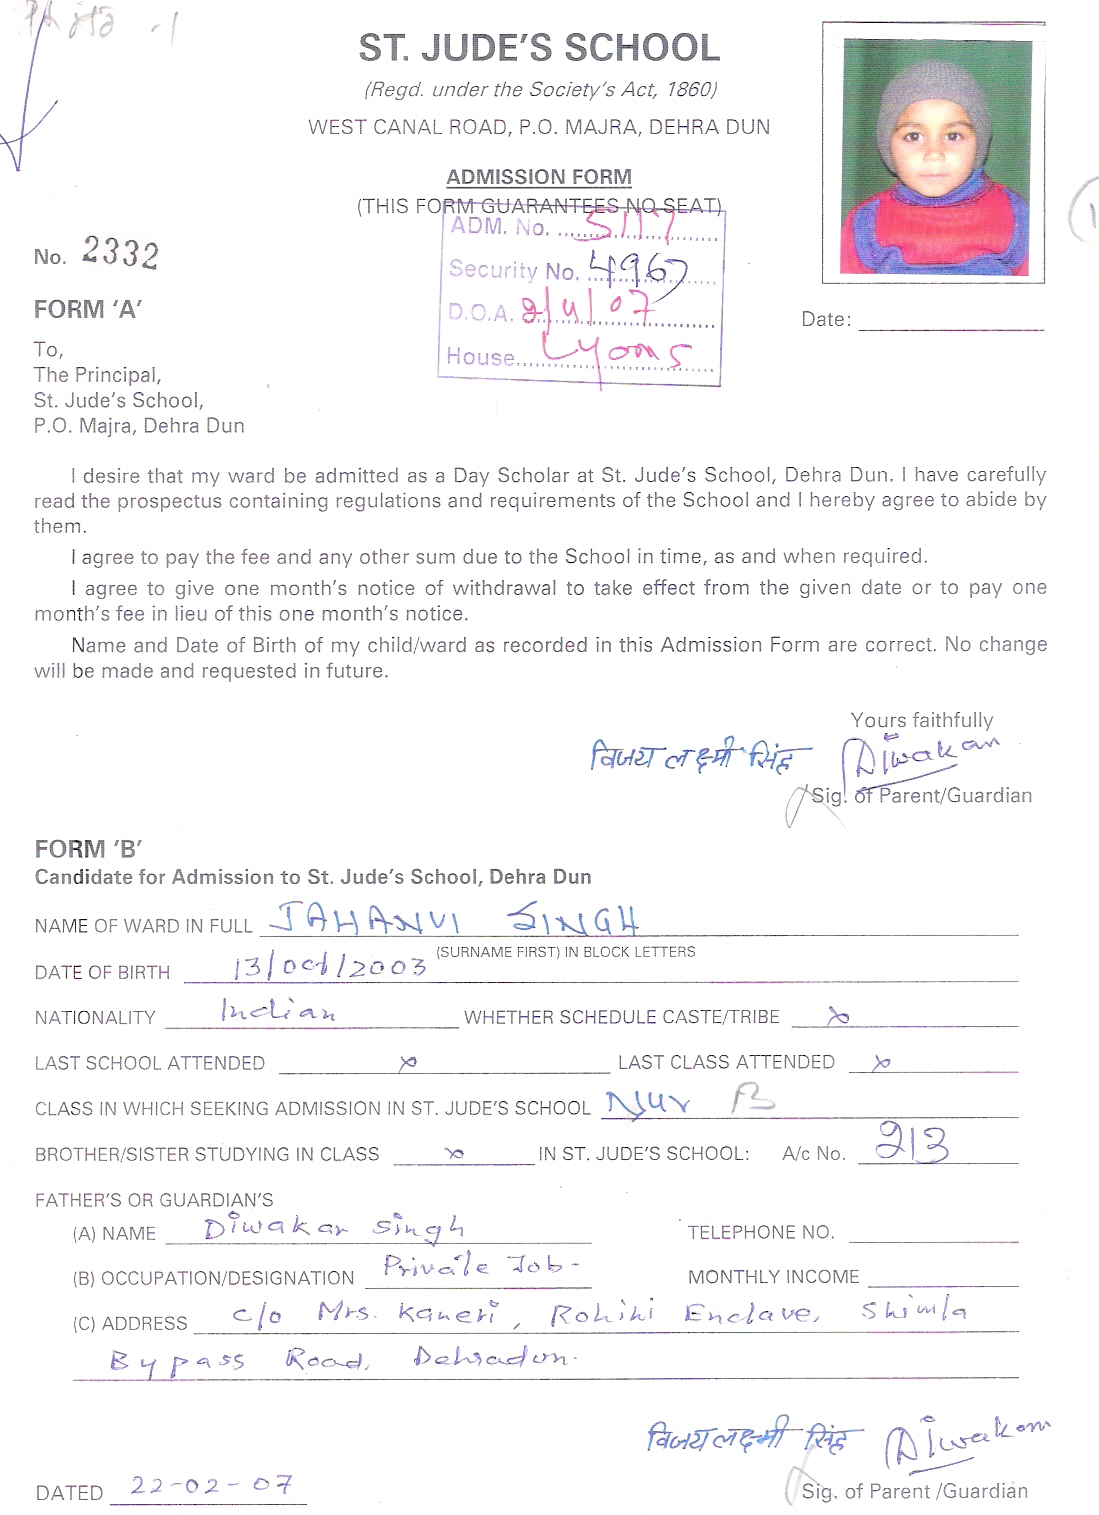 ST. JUDE'S SCHOOL
(Regd. under the Society's Act, 1860)
WEST CANAL ROAD, P.O. MAJRA, DEHRA DUN
ADMISSION FORM
(THIS FORM GUARANTEES NO SEAT)
ADM. No. 5117
Security No. 4967
D.O.A. 2/4/07
House Lyons
No. 2332
FORM 'A'
Date:
To,
The Principal,
St. Jude's School,
P.O. Majra, Dehra Dun
I desire that my ward be admitted as a Day Scholar at St. Jude's School, Dehra Dun. I have carefully
read the prospectus containing regulations and requirements of the School and I hereby agree to abide by
them.
I agree to pay the fee and any other sum due to the School in time, as and when required.
I agree to give one month's notice of withdrawal to take effect from the given date or to pay one
month's fee in lieu of this one month's notice.
Name and Date of Birth of my child/ward as recorded in this Admission Form are correct. No change
will be made and requested in future.
Yours faithfully
विजय लक्ष्मी सिंह Diwakar
Sig. of Parent/Guardian
FORM 'B'
Candidate for Admission to St. Jude's School, Dehra Dun
NAME OF WARD IN FULL JAHANVI SINGH
(SURNAME FIRST) IN BLOCK LETTERS
DATE OF BIRTH 13/oct/2003
NATIONALITY Indian WHETHER SCHEDULE CASTE/TRIBE x
LAST SCHOOL ATTENDED x LAST CLASS ATTENDED x
CLASS IN WHICH SEEKING ADMISSION IN ST. JUDE'S SCHOOL Nur B
BROTHER/SISTER STUDYING IN CLASS x IN ST. JUDE'S SCHOOL: A/c No. 213
FATHER'S OR GUARDIAN'S
(A) NAME Diwakar Singh TELEPHONE NO.
(B) OCCUPATION/DESIGNATION Private Job - MONTHLY INCOME
(C) ADDRESS c/o Mrs. Kaneri, Rohini Enclave, Shimla
Bypass Road, Dehradun.
विजय लक्ष्मी सिंह Diwakar
DATED 22-02-07 Sig. of Parent /Guardian